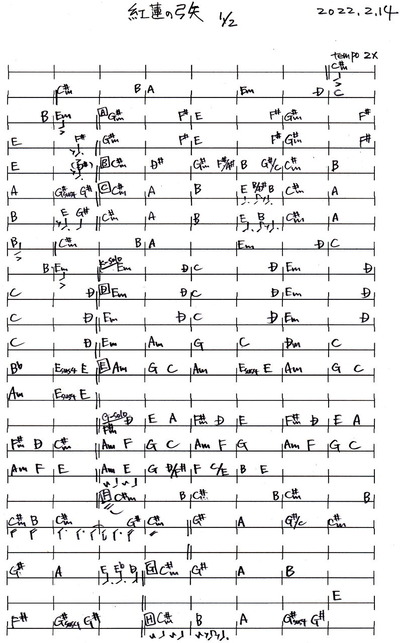 紅蓮の弓矢 1/2 2022.2.14
tempo 2x
C#m
C#m B A Em D C
B Em A G#m F# E F# G#m F#
E F# G#m F# E F# G#m F#
E (D#) B C#m D# G#m F#/A# B G#/C C#m B
A G#sus4 G# C C#m A B E B/D# B C#m A
B E G# C#m A B E B C#m A
B C#m B A Em D C
B Em K-solo Em D C D Em D
C D D Em D C D Em D
C D Em D C D Em D
C D Em Am G C Dm C
Bb Esus4 E E Am G C Am Esus4 E Am G C
Am Esus4 E
G-solo
F#m D E A F#m D E F#m D E A
F#m D C#m Am F G C Am F G Am F G C
Am F E Am E G D/F# F C/E B E
F C#m B C#m B C#m B
C#m B C#m G# C#m G# A G#/C C#m
G# A E Eb D G C#m G# A B
E
F# G#sus4 G# H C#m B A G#sus4 G#